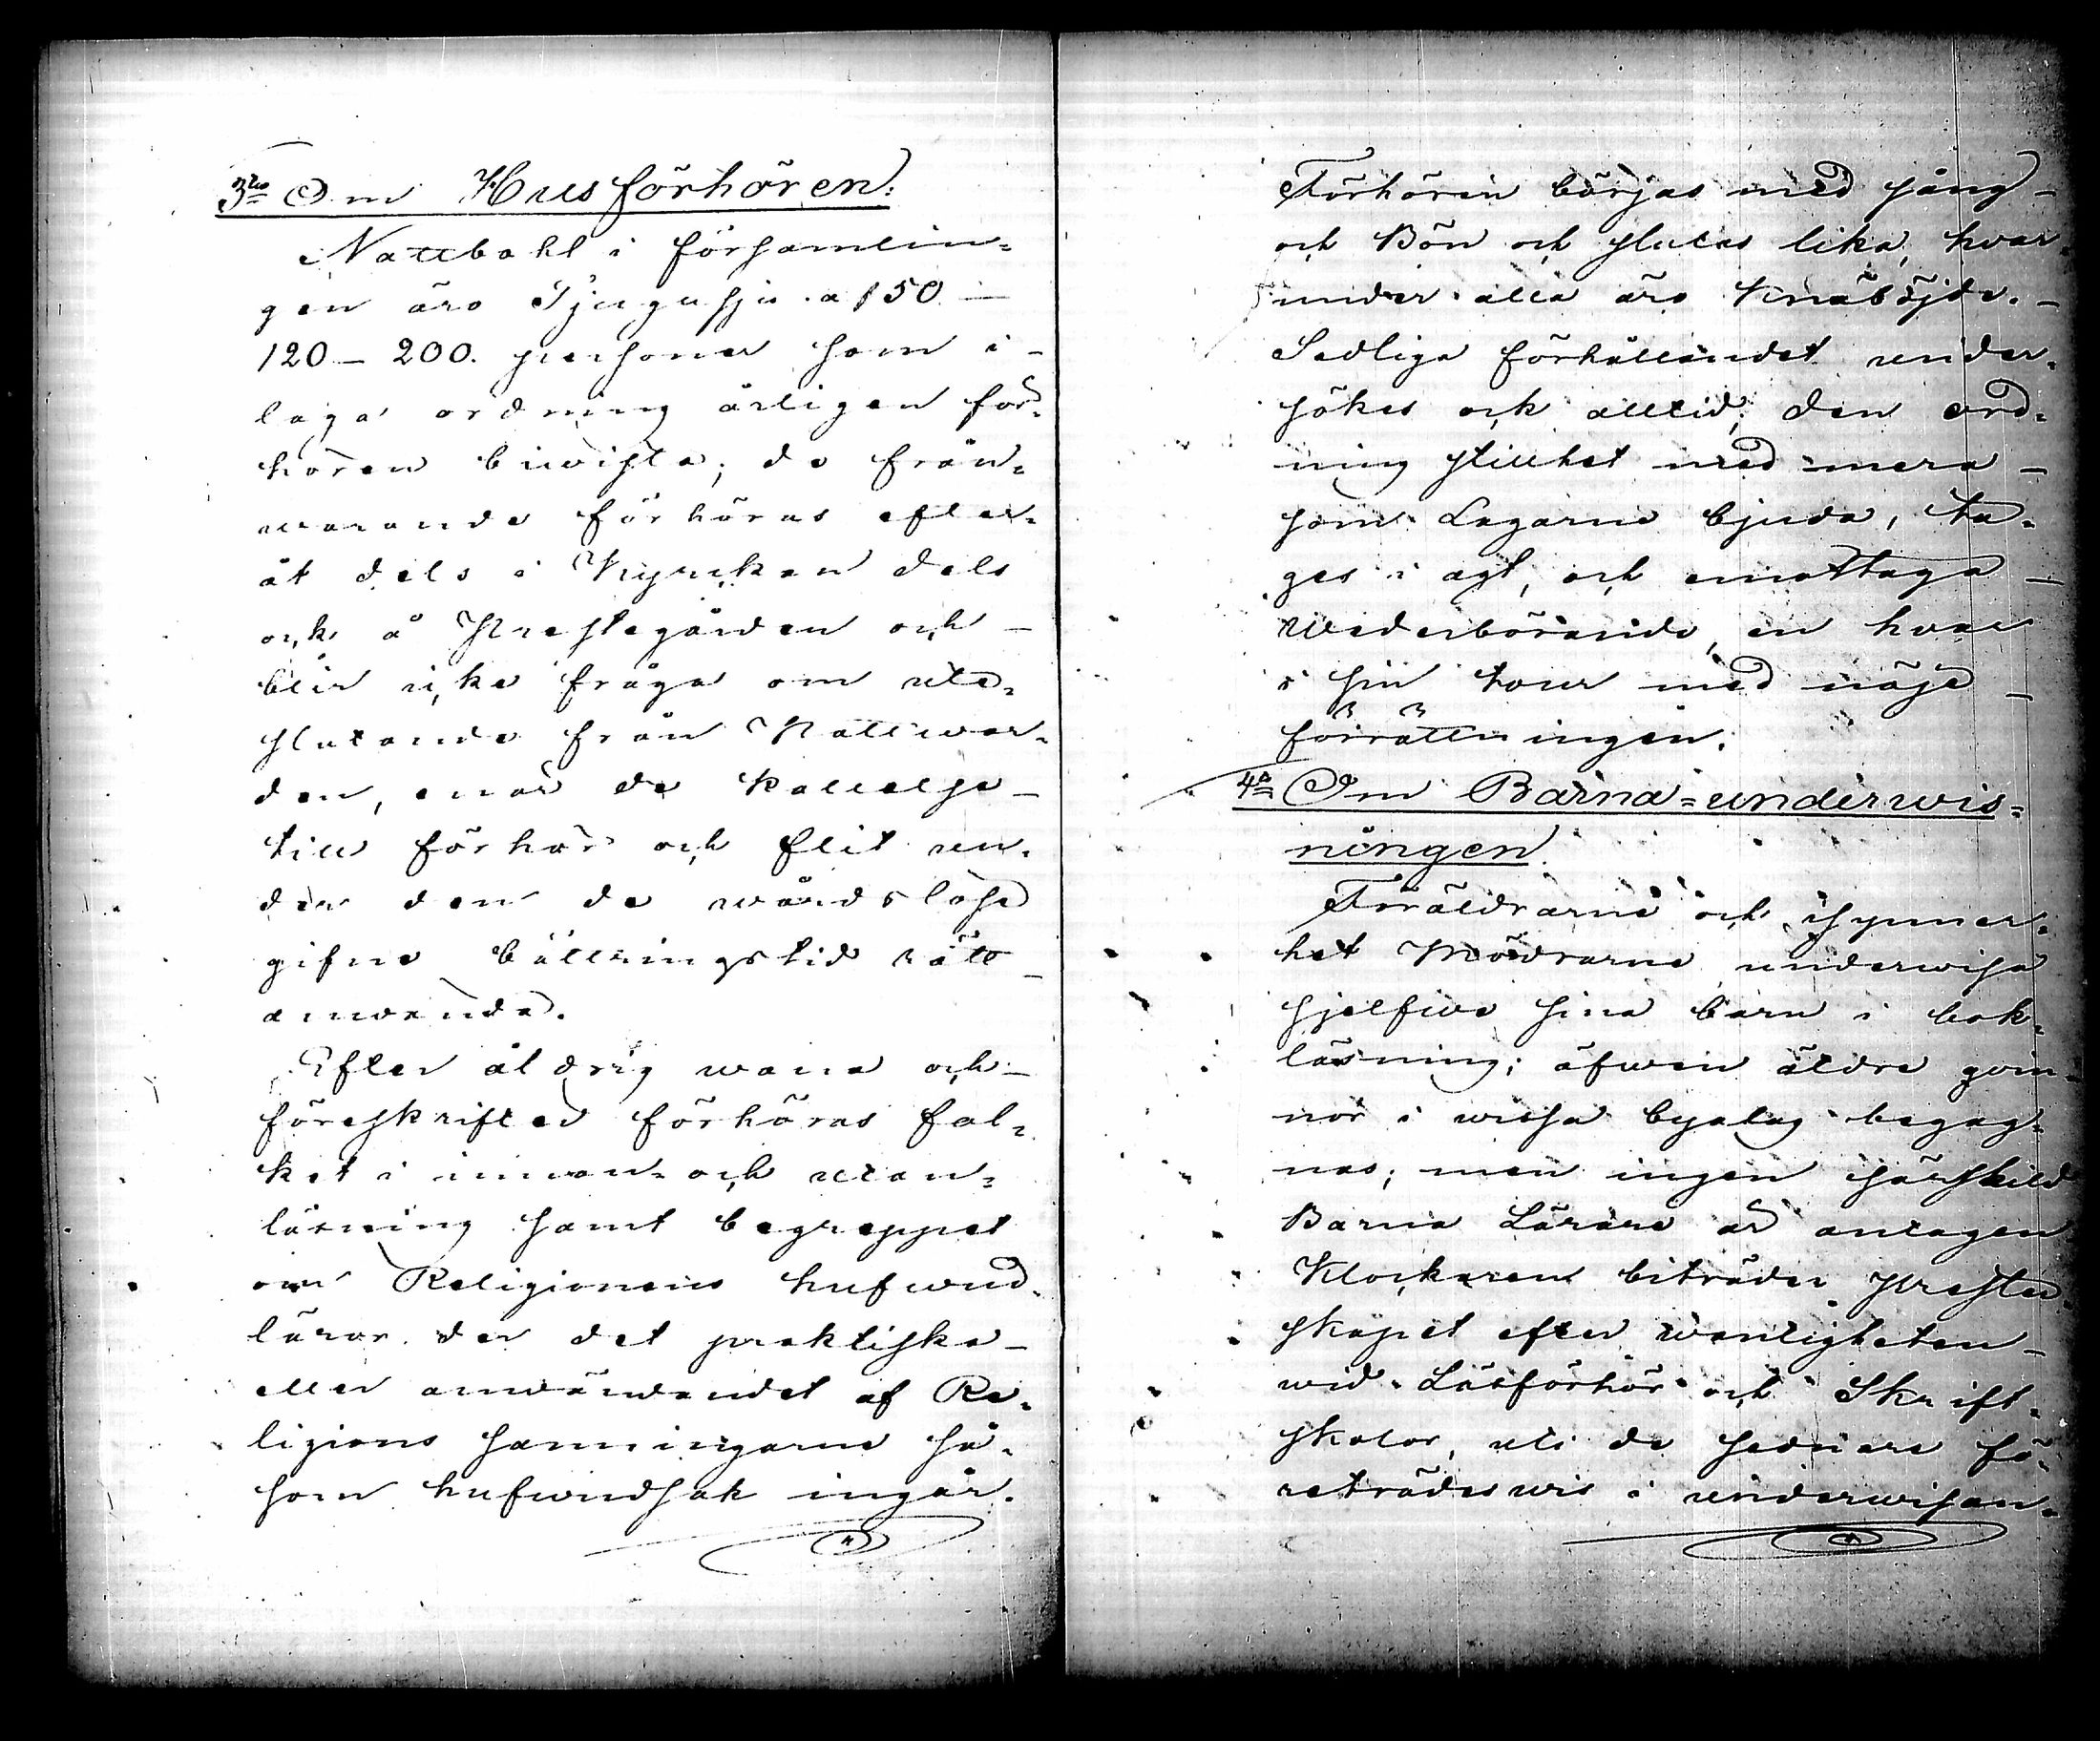 3tio Om Husförhören.
Nattbohl i församlin=
gen äro Tjugusju a 150 —
120 — 200. personer som i —
laga ordning årligen för=
hören biwista; de från=
warande förhöras efter=
åt dels i Kyrckan dels
ock å Prestegården och —
blir icke fråga om ute=
slutande från Nattwar=
den, enär de kallelse —
till förhör och flit un=
der den de wårdslöse
gifne bättringstid rätt —
anwända.
Efter åldrig wana och —
föreskrifter förhöras fol=
ket i innan= och utan=
läsning samt begreppet
om Religionens hufwud=
läror der det praktiska —
eller anwändandet af Re=
ligions sanningarne så=
som hufwudsak ingår.
Förhören börjas med sång —
och Bön och slutas lika, hvar=
under alla äro knäböjde. —
Sedliga förhållandet under=
sökes ock alltid; den ord=
ning stillhet med mera —
som Lagarne bjuda, ta=
ges i agt, och emottaga —
wederbörande, en hvar
i sin tour med nöje —
förrättningen.
4o Om Barna=underwis=
ningen.
Föräldrarne och isynner=
het Mödrarne underwisa
sjelfwe sina barn i bok=
läsning; äfwen äldre qvin=
nor i wissa byalag begag=
nas; men ingen särskild
Barna Lärare är antagen
Klockaren biträder Preste=
skapet efter wanligheten —
wid Läsförhör och Skrift=
skolor, uti de sednare fö=
reträdeswis i underwisan=